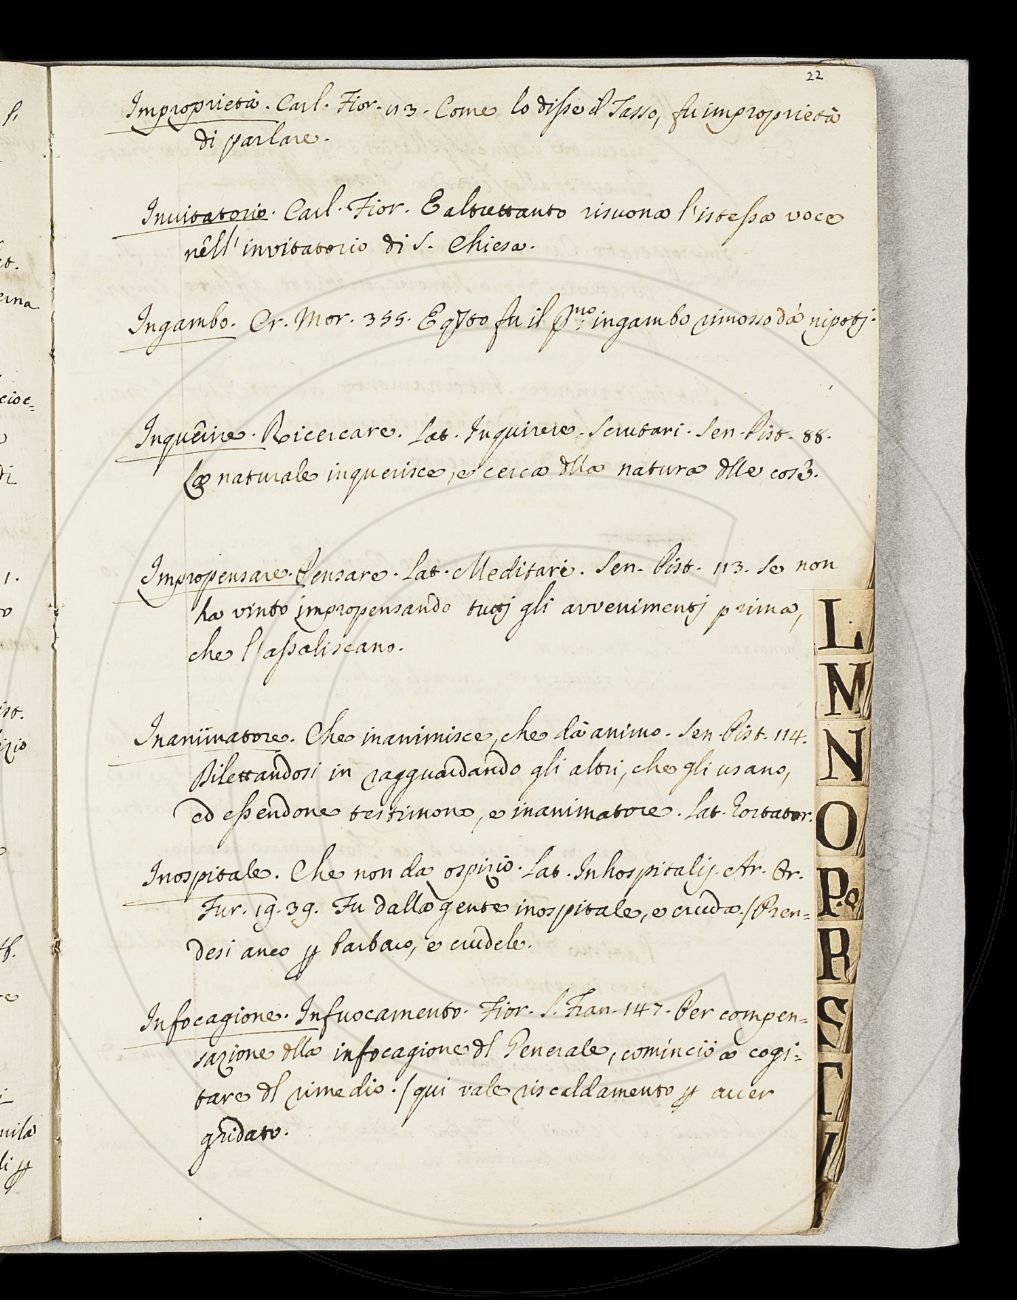 22
Improprietà. Carl. Fior. 113. Come lo disse il Tasso, fu improprietà
di parlare.
Invitatorio. Carl. Fior. E altrettanto risuona l'istessa voce
nell'invitatorio di S. Chiesa.
Ingambo. Cr. Mor. 355. E qsto fu il pmo ingambo rimosso dà nipotj.
Inquerire. Ricercare. Lat. Inquirere. Scrutari. Sen. Pist. 88.
La naturale inquerisce, e cerca dlla natura dlle cose.
Impropensare. Pensare. Lat. Meditari. Sen. Pist. 113. Se non
ha vinto impropensando tuttj gli avvenimentj prima,
che l'assaliscano.
Inanimatore. Che inanimisce, che dà animo. Sen. Pist. 114.
Dilettandosi in ragguardando gli altri, che gli usano,
ed essendone testimone, e inanimatore. Lat. Hortator.
Inospitale. Che non da ospizio. Lat. Inhospitalis. Ar. Or.
Fur. 19. 39. Fu dalla gente inospitale, e cruda. / Pren=
desi anco p barbaro, e crudele.
Infocagione. Infuocamento. Fior. S. Fran. 147. Per compen=
sazione dlla infocagione dl Generale, cominciò a cogi=
tare dl rimedio. / qui vale riscaldamento p aver
gridato.
L
M
N
O
P.Q
R
S
T
V